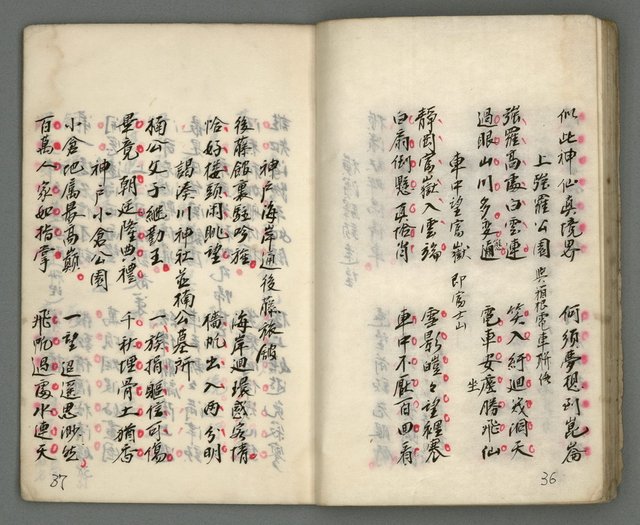 似此神仙真境界　何須夢想到崑崙
上強羅公園 與箱根電車
強羅高處白雲連　笑入紆迴幾洞天
過眼山川多異趣　電車安座勝飛仙
坐
車中望富嶽 即富士山
靜岡富嶽入雲端　雲影皚々望裡寒
白扇倒懸真恰肖　車中不厭百回看
36
神戶海岸通後藤旅館
後藤飯裏駐吟旌　海岸迴環感客情
恰好樓頭閒眺望　檣帆出入兩分明
謁湊川神社並楠公墓所
楠公父子繼勤王　一族捐軀信可傷
畢竟朝廷隆典禮　千秋埋骨土猶香
神戶小倉公園
小倉地屬最高顛　一望迢遥思渺然
百萬人家如指掌　飛帆過處水連天
37